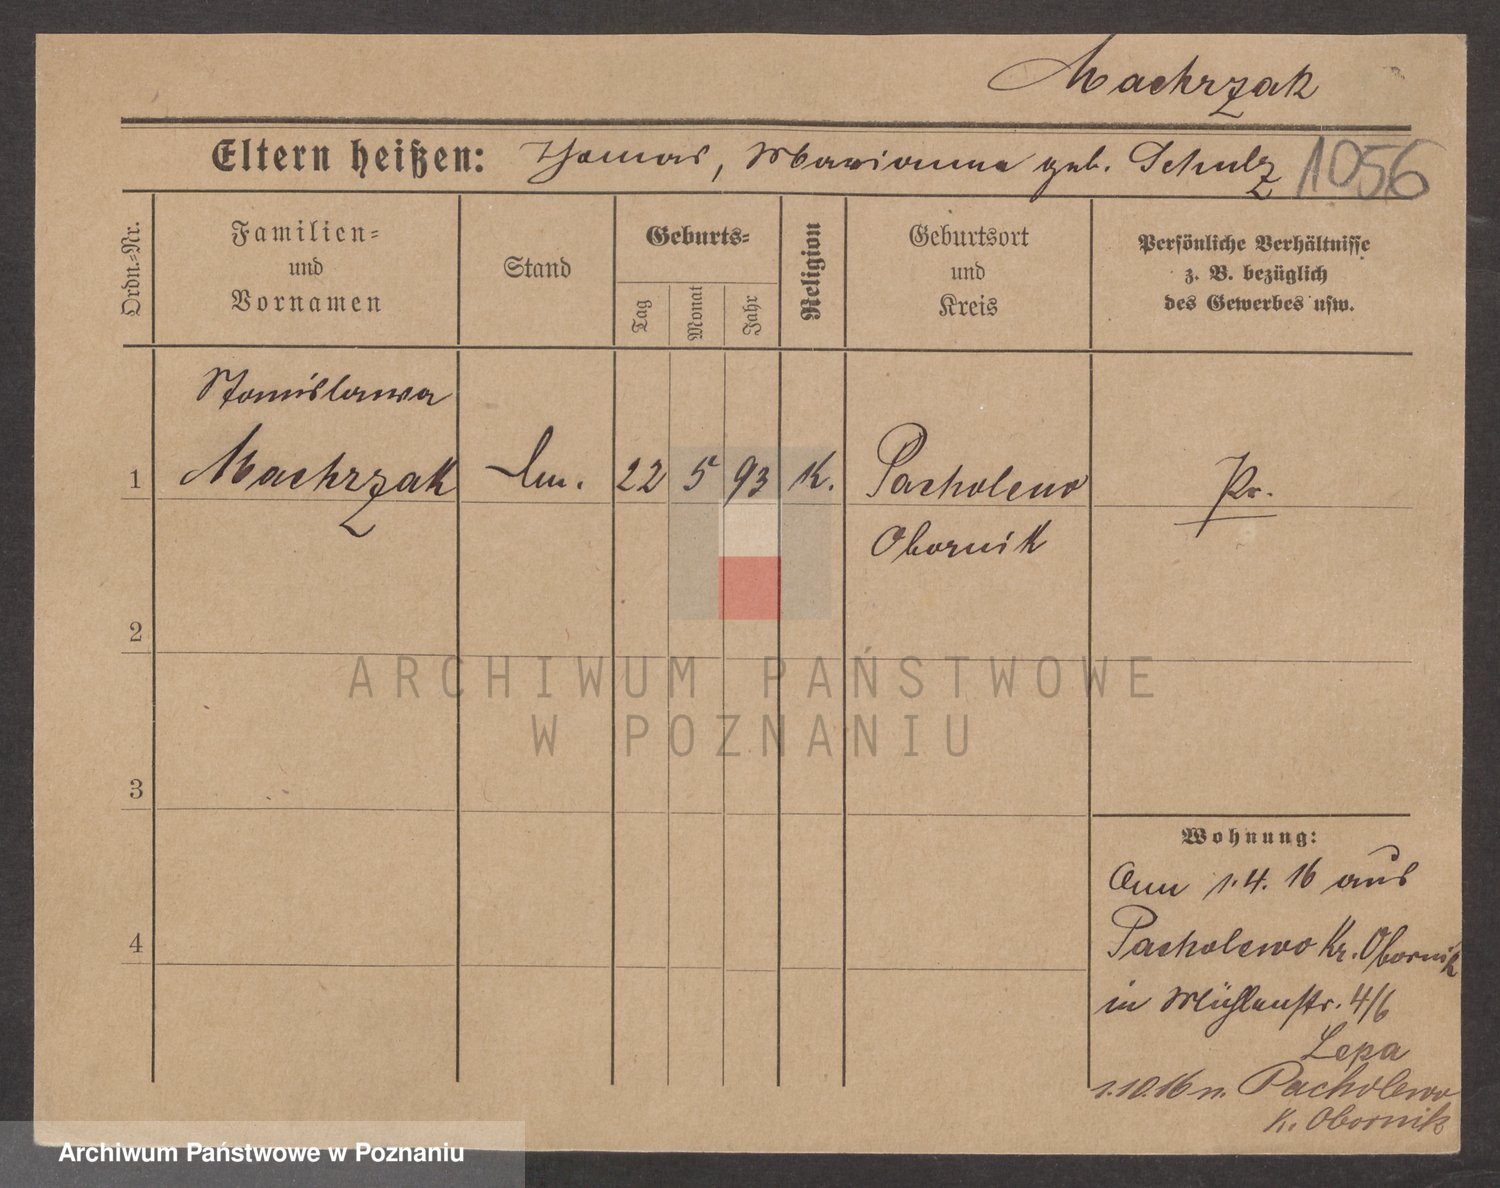 Machrzak
Eltern heißen: Thomas, Marianna geb. Schulz 1056
Ordn.-Nr.
Familien-
und
Vornamen
Stand
Geburts-
Tag
Monat
Jahr
Religion
Geburtsort
und
Kreis
Persönliche Verhältnisse
z. B. bezüglich
des Gewerbes usw.
Stanislawa
1 Machrzak 22 5 93 K. Pacholewo Pr.
Obornik
2
3
4
Wohnung:
1.4.16 aus
Pacholewo Kr. Obornik
in Mühlenstr. 4/6
Lepa
1.10.16 n. Pacholewo
K. Obornik
ARCHIWUM PAŃSTWOWE
W POZNANIU
Archiwum Państwowe w Poznaniu